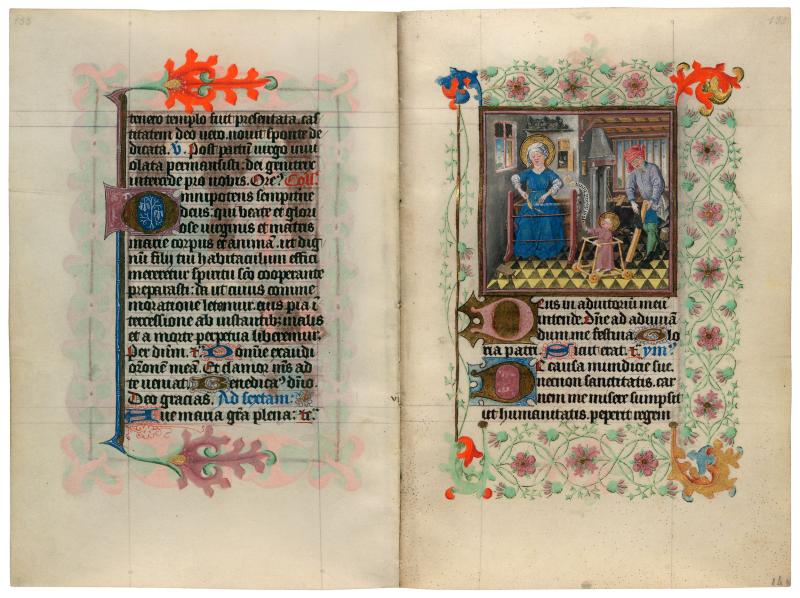 tenero templo fuit presentata. cas
titatem deo vero. novit sponte de
dicata. V. Post partu virgo invi
olata permansisti: dei genitrix
intercede pro nobis. Ore? Coll.
Omnipotens sempitne
deus: qui beate et glori
ose virginis et matris
marie corpus et animam. ut dig
nu filij tui habitaculum effici
mereretur spiritu sco cooperante
preparasti: da ut cuius comme
moratione letamur. eius pia i
tercessione ab instantib; malis
et a morte perpetua liberemur:
Per dnm. Domine exaudi
ozonem mea. Et clamor ms ad
te veniat. Benedica? dno
Deo gracias. Ad sextam:
Aue maria gra plena:
Deus in adiutoriu meu
intende: Dne ad adiuua
dum me festina. Glo
ria patri. Sicut erat. ym?
E causa mundicie sue
necnon sanctitatis. car
nem me misere sumpsit
ut humanitatis. peperit regem